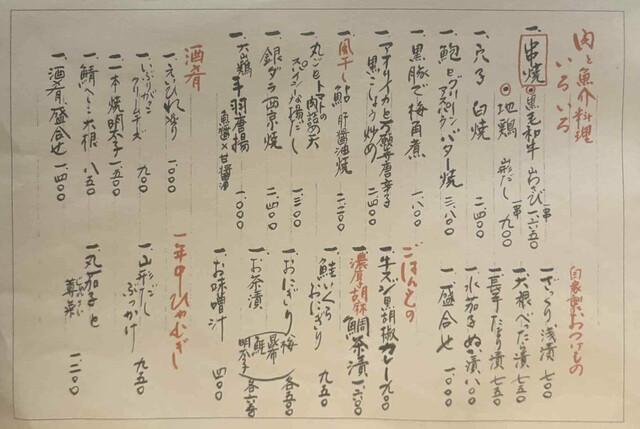 肉と魚介料理
いろいろ
一、串焼
◎黒毛和牛 山わさび 一串 一.六五〇
◎地鶏 山形だし 一串 九〇〇
一、穴子 白焼 二.四〇〇
一、鮑とグリーンアスパラ バター焼 三.八〇〇
一、黒豚で梅角煮 一.八〇〇
一、アオリイカと万願寺唐辛子
黒こしょう炒め 二.四〇〇
一、風干し鮎 肝醤油焼 二.二〇〇
一、丸ごとトマトの肉詰め天
スパイシーな揚だし 一.三〇〇
一、銀ダラ西京焼 二.四〇〇
一、大山鶏 手羽唐揚
魚醤×甘醤油 一.〇〇〇
酒肴
一、えいひれ炙り 一.〇〇〇
一、いぶりがっこ
クリームチーズ 九〇〇
一、一本焼明太子 一.五〇〇
一、鯖へしこ大根 八五〇
一、酒肴盛合せ 一.四〇〇
自家製おつけもの
一、ざっくり浅漬 七〇〇
一、大根べったら漬 七五〇
一、長芋たまり漬 七五〇
一、水茄子ぬか漬 八〇〇
一、盛合せ 一.〇〇〇
ごはんもの
一、牛スジ黒胡椒カレー 九〇〇
一、濃厚胡麻鯛茶漬 一.六〇〇
一、鮭いくら
おにぎり 九五〇
一、おにぎり 梅 各五〇〇
一、お茶漬 昆布 鮭 明太子 各六五〇
一、お味噌汁 四〇〇
一年中ひやむぎし
一、山形だし
ぶっかけ 九五〇
一、丸茄子と
蓴菜 一.二〇〇